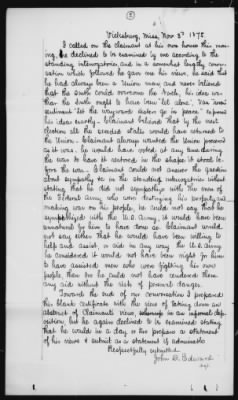 (5)
Vicksburg, Miss, Nov 3d 1875
I called on the claimant at his own house this mor-
ning. He declined to be examined by me according to the
standing interrogatories, and in a somewhat lengthy conver-
sation which followed he gave me his views. He said that
he had always been a Union man and never believed
that the South could overcome the North, his idea was
that the South ought to have been let alone.
sentiment "let the wayward sisters go in peace"
his ideas exactly. Claimant believed that by the next
election all the seceded states would have returned to
the Union. Claimant always wanted the Union preserved
as it was, he would have voted at any time during
the war to have it restored in the shape it stood be-
fore the war. Claimant could not answer the question
about sympathy as in the standing interrogatories without
stating that he did not sympathize with the men of
the Federal Army who were destroying his property and
making war on his people, he could not say that he
sympathized with the U.S. Army, it would have been
unnatural for him to have done so. Claimant would
not say either that he would have been willing to
help and assist, or aid in any way the U.S. Army
he considered it would not have been right for him
to have assisted men who were fighting his own
people, then too he could not have rendered them
any aid without the risk of personal danger.
Toward the end of our conversation I prepared
this blank certificate with the view of taking down an
abstract of Claimant's views, in an informal depo-
sition, but he again declined to be examined stating
that he would in a day or two prepare a statement
of his views & submit as a statement if admissible
Respectfully submitted
John D. Edwards